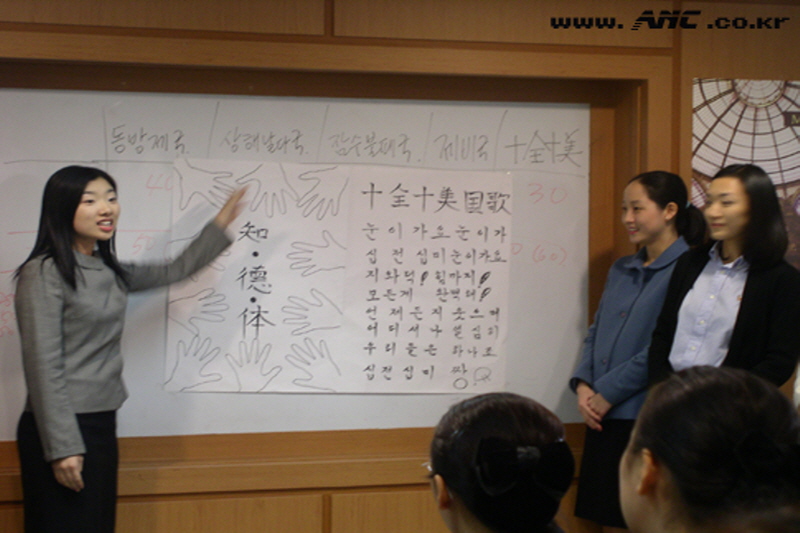 www.ANC.co.kr
동방제국 상해날다국 잠수불패국 제비국 十全十美
40
50
30
(60)
知·德·体
十全十美国歌
눈이가요눈이가
십전십미눈이가요
지와덕! 힘까지!
모든게 완벽해!
언제든지 웃으며
어디서나 열심히
우리들은 하나로
십전십미 짱